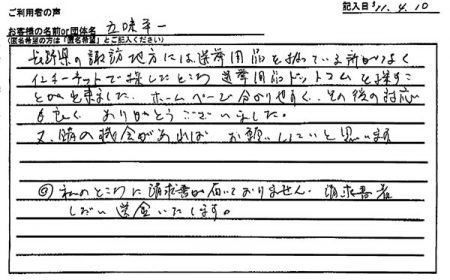 ご利用者の声
記入日 H21.4.10
お客様の名前or団体名 五味平一
(匿名希望の方は「匿名希望」とご記入ください)
長野県の諏訪地方には選挙用品を扱っている所がなく
インターネットで探したところ 選挙用品ドットコムを探すこ
とが出来ました。ホームページも分かりやすく、その後の対応
も良く ありがとうございました。
又、の機会があれば お願いしたいと思います
私のところに請求書が届いておりません。請求書着
しだい送金いたします。